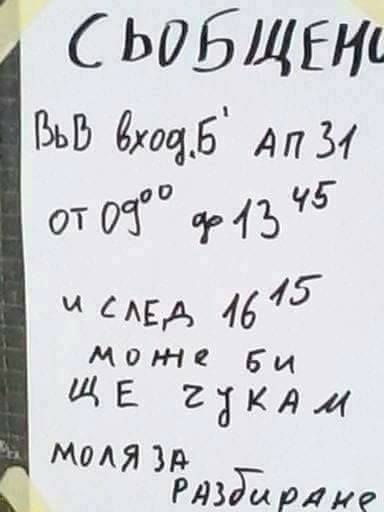 СЬОБЩЕНИ
ВЬВ вход.Б' АП 31
ОТ 09⁰⁰ до 13⁴⁵
и СЛЕД 16¹⁵
може би
ЩЕ чукам
МОЛЯ ЗА
РАЗбиране